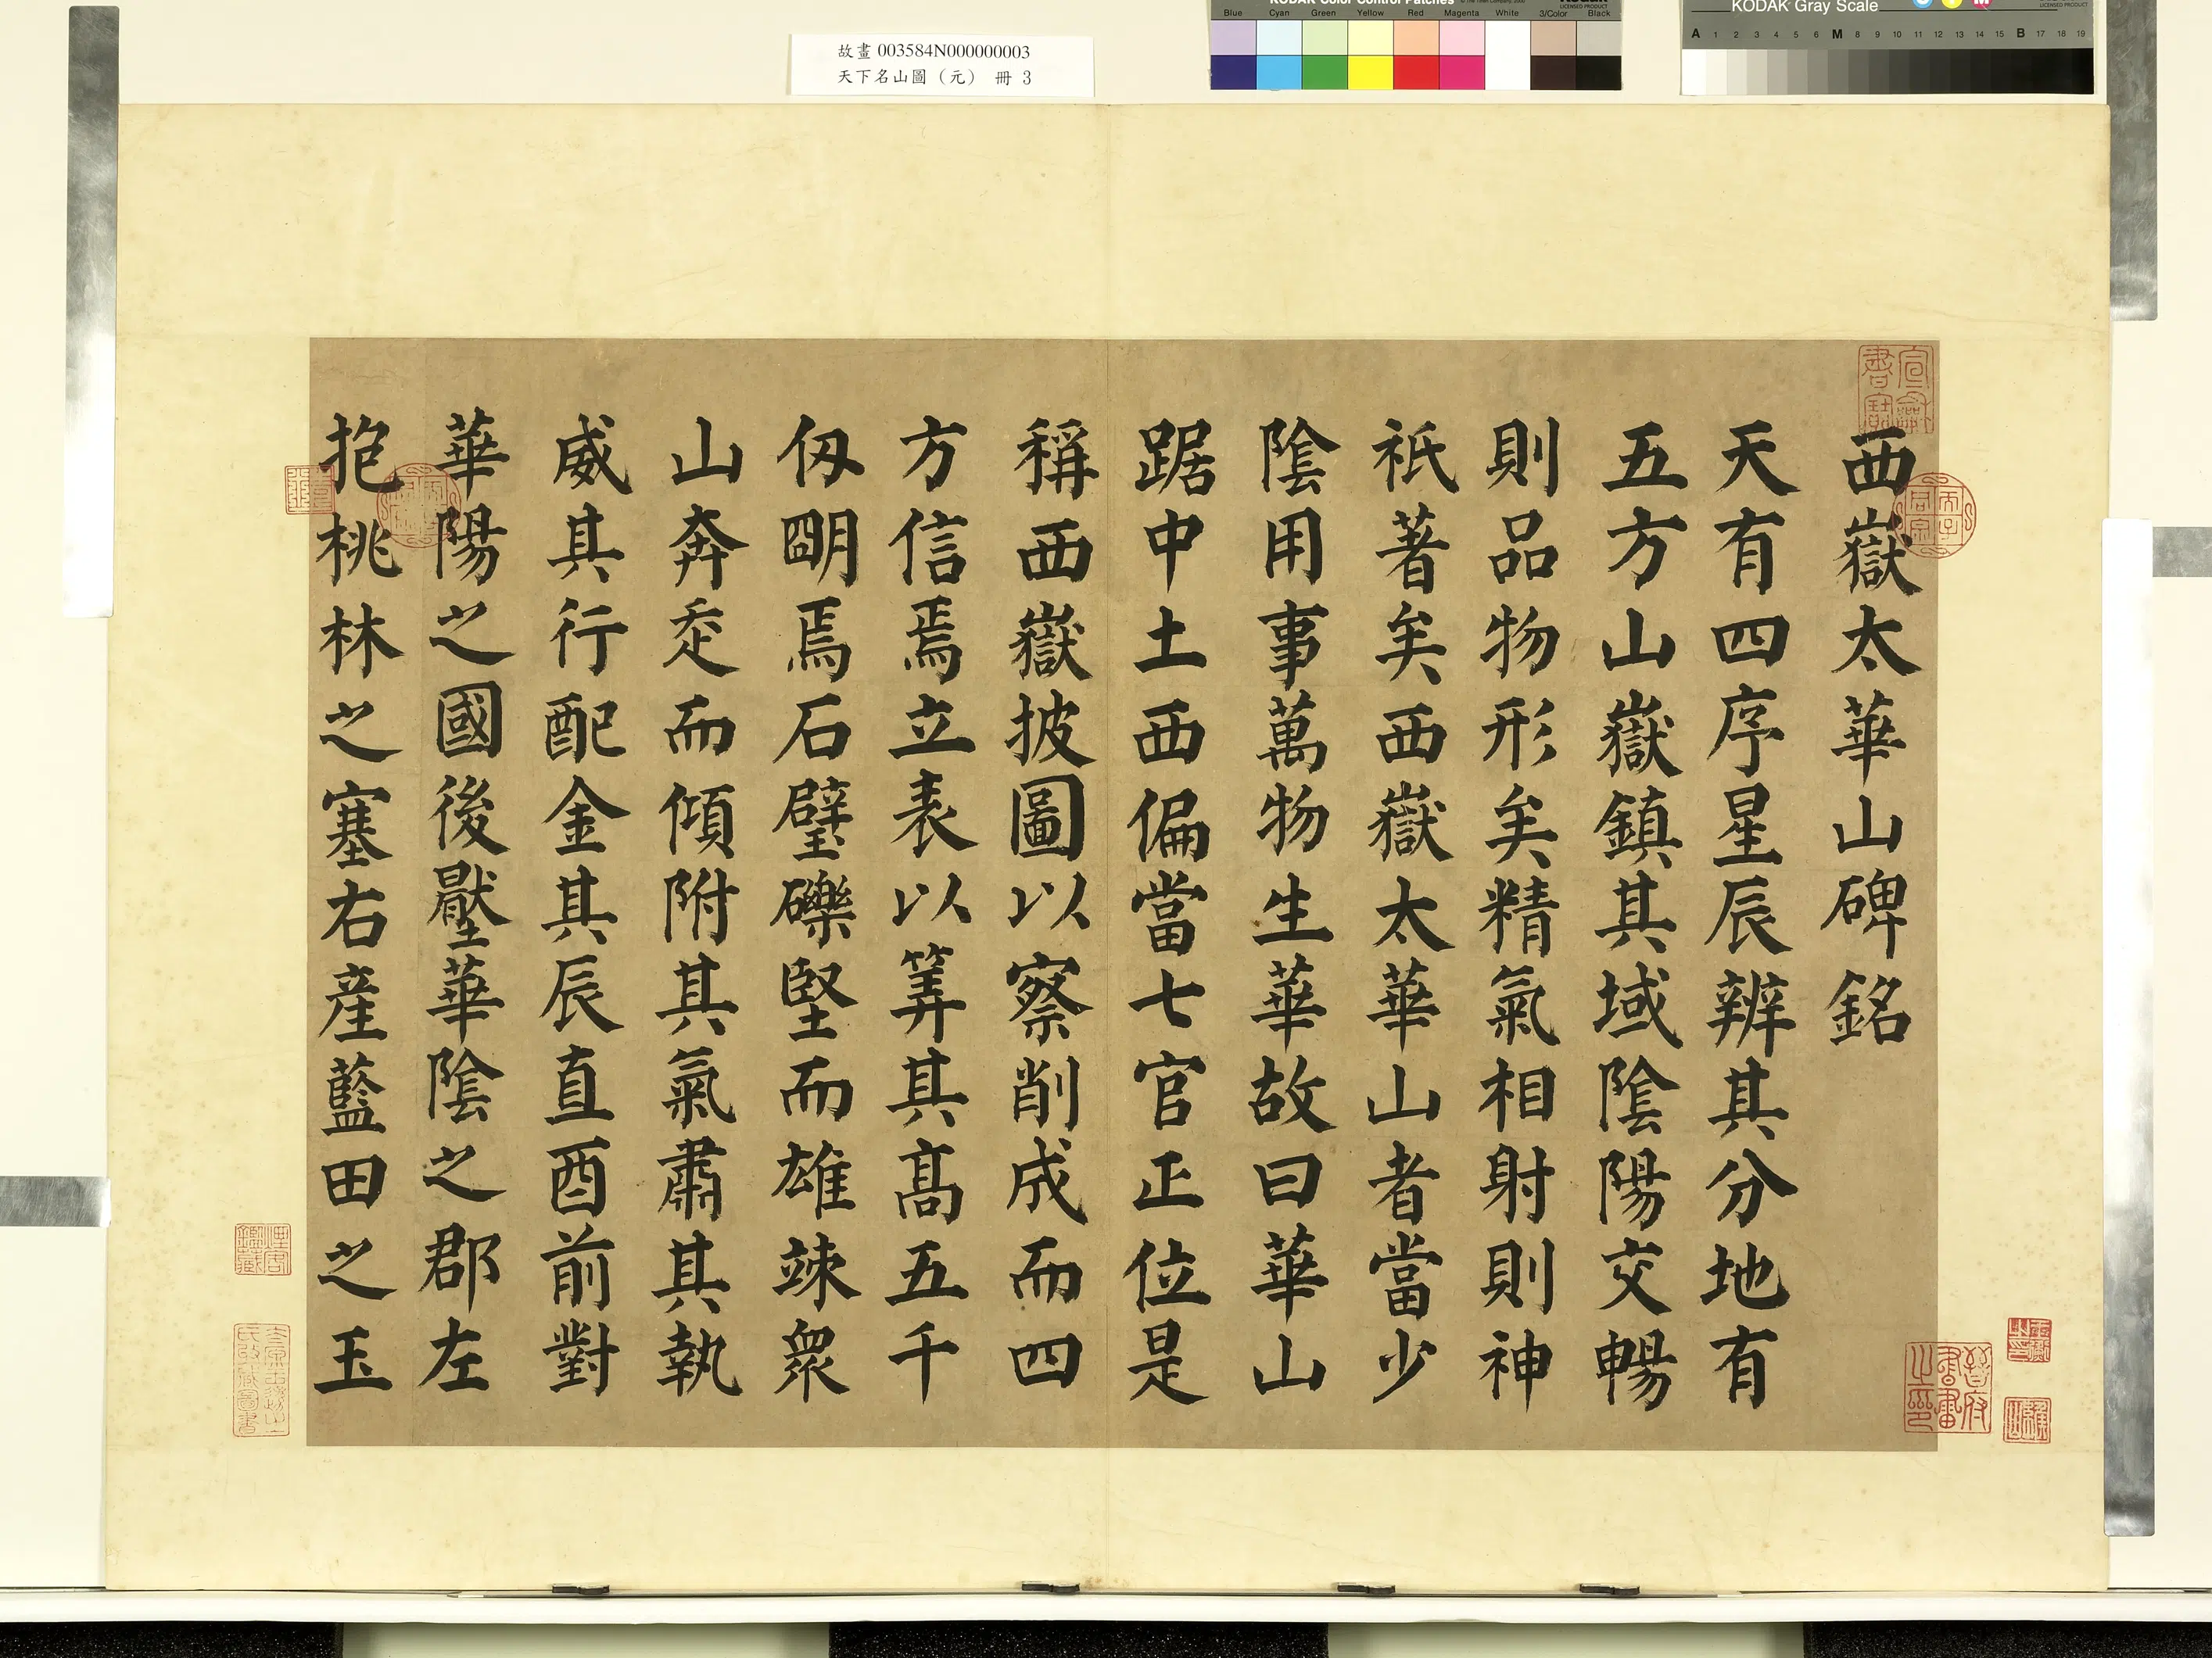 故畫 003584N000000003
天下名山圖（元） 冊 3
KODAK Color Control Patches
LICENSED PRODUCT
Blue Cyan Green Yellow Red Magenta White 3/Color Black
KODAK Gray Scale
LICENSED PRODUCT
A 1 2 3 4 5 6 M 8 9 10 11 12 13 14 15 B 17 18 19
西嶽太華山碑銘
天有四序星辰辨其分地有
五方山嶽鎮其域陰陽交暢
則品物形矣精氣相射則神
祇著矣西嶽太華山者當少
陰用事萬物生華故曰華山
踞中土西偏當七宮正位是
稱西嶽披圖以察削成而四
方信焉立表以筭其髙五千
仭朙焉石壁礫堅而雄竦衆
山奔走而傾附其氣肅其執
威其行配金其辰直酉前對
華陽之國後壓華陰之郡左
抱桃林之塞右産藍田之玉
晉府書畫之印